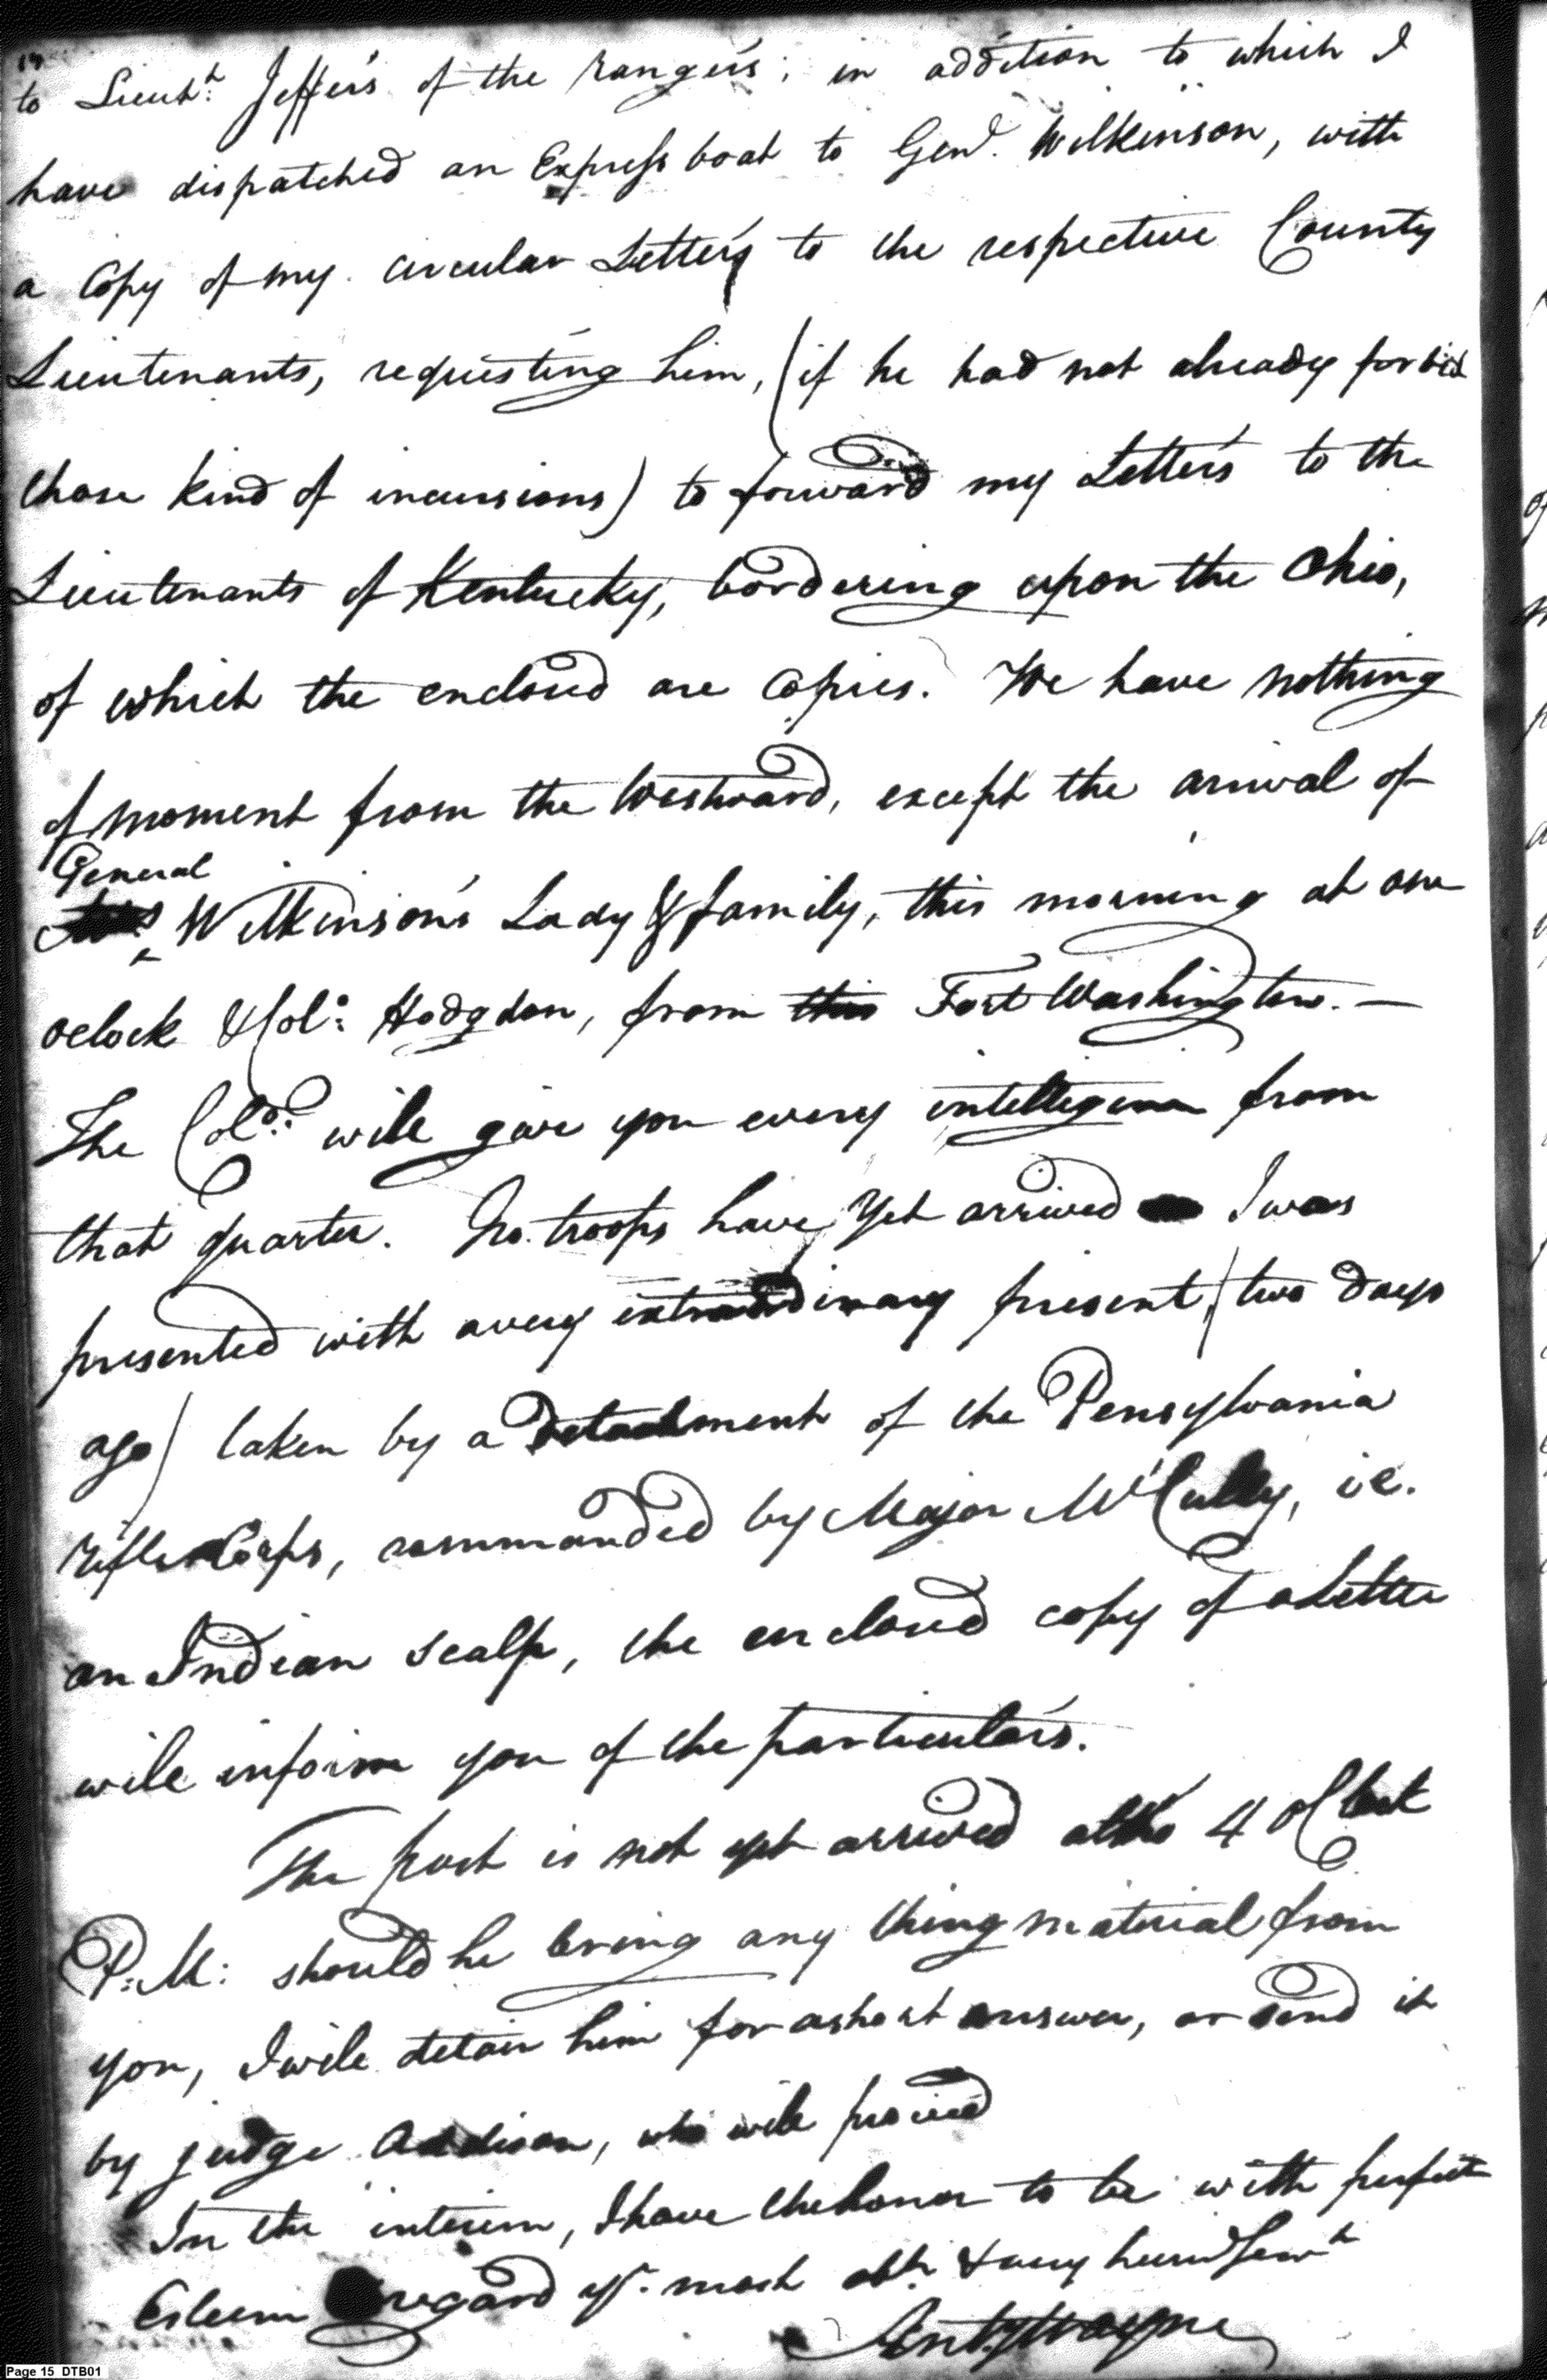 14
to Lieut.t Jeffers of the rangers; in addition to which I
have dispatched an Express boat to Genl. Wilkinson, with
a Copy of my circular Letters to the respective County
Lieutenants, requesting him, (if he had not already forbid
those kind of incursions) to forward my Letters to the
Lieutenants of Kentucky, bordering upon the Ohio,
of which the enclosed are Copies. We have nothing
of moment from the Westward, except the arrival of
General
Wilkinson's Lady & family, this morning at one
oclock & Col: Hodgdon, from this Fort Washington. —
The Colo: will give you every intelligence from
that quarter. No troops have yet arrived I was
presented with a very extraordinary present, (two days
ago) taken by a Detachment of the Pensylvania
rifle Corps, commanded by Major McCully, ie.
an Indian scalp, the enclosed copy of a Letter
will inform you of the particulars.
The post is not yet arrived altho 4 oClock
P:M: should he bring any thing material from
you, I will detain him for a short answer, or send it
by judge Addison, who will proceed
In the interim, I have the honor to be with perfect
Esteem regard yr. most obt & very hum Servt
Anty Wayne
Page 15 DTB01